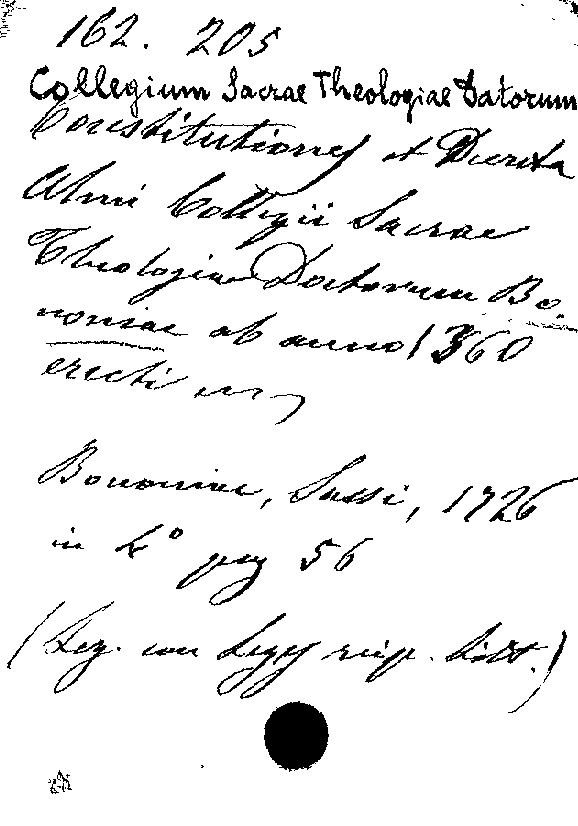 162. 205
Collegium Sacrae Theologiae Datorum
Constitutiones et Decreta
Almi Collegii Sacrae
Theologiae Doctorum Bo-
noniae ab anno 1360
erecti
Bononiae, Sassi, 1726
in 4° pag 56
(Leg. con Leggi